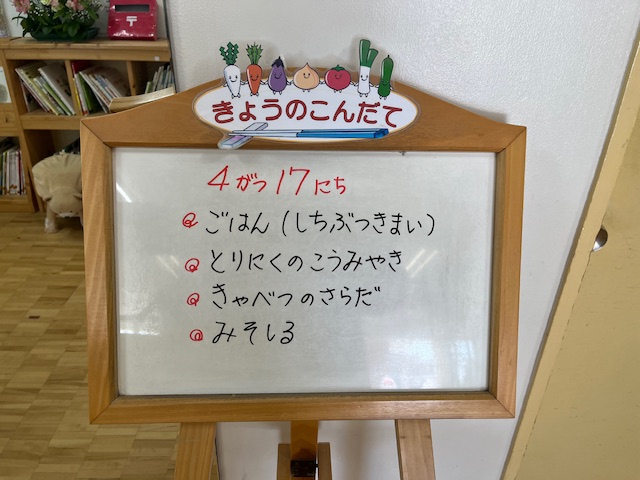 きょうのこんだて
4がつ17にち
ごはん(しちぶつきまい)
とりにくのこうみやき
きゃべつのさらだ
みそしる